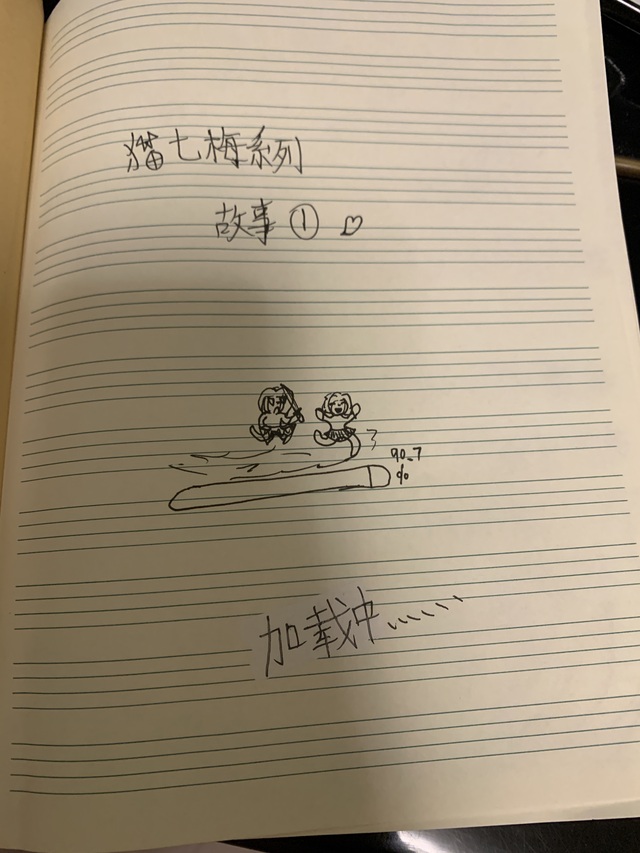 猫七梅系列
故事① ♡
90.7
%
加载中……